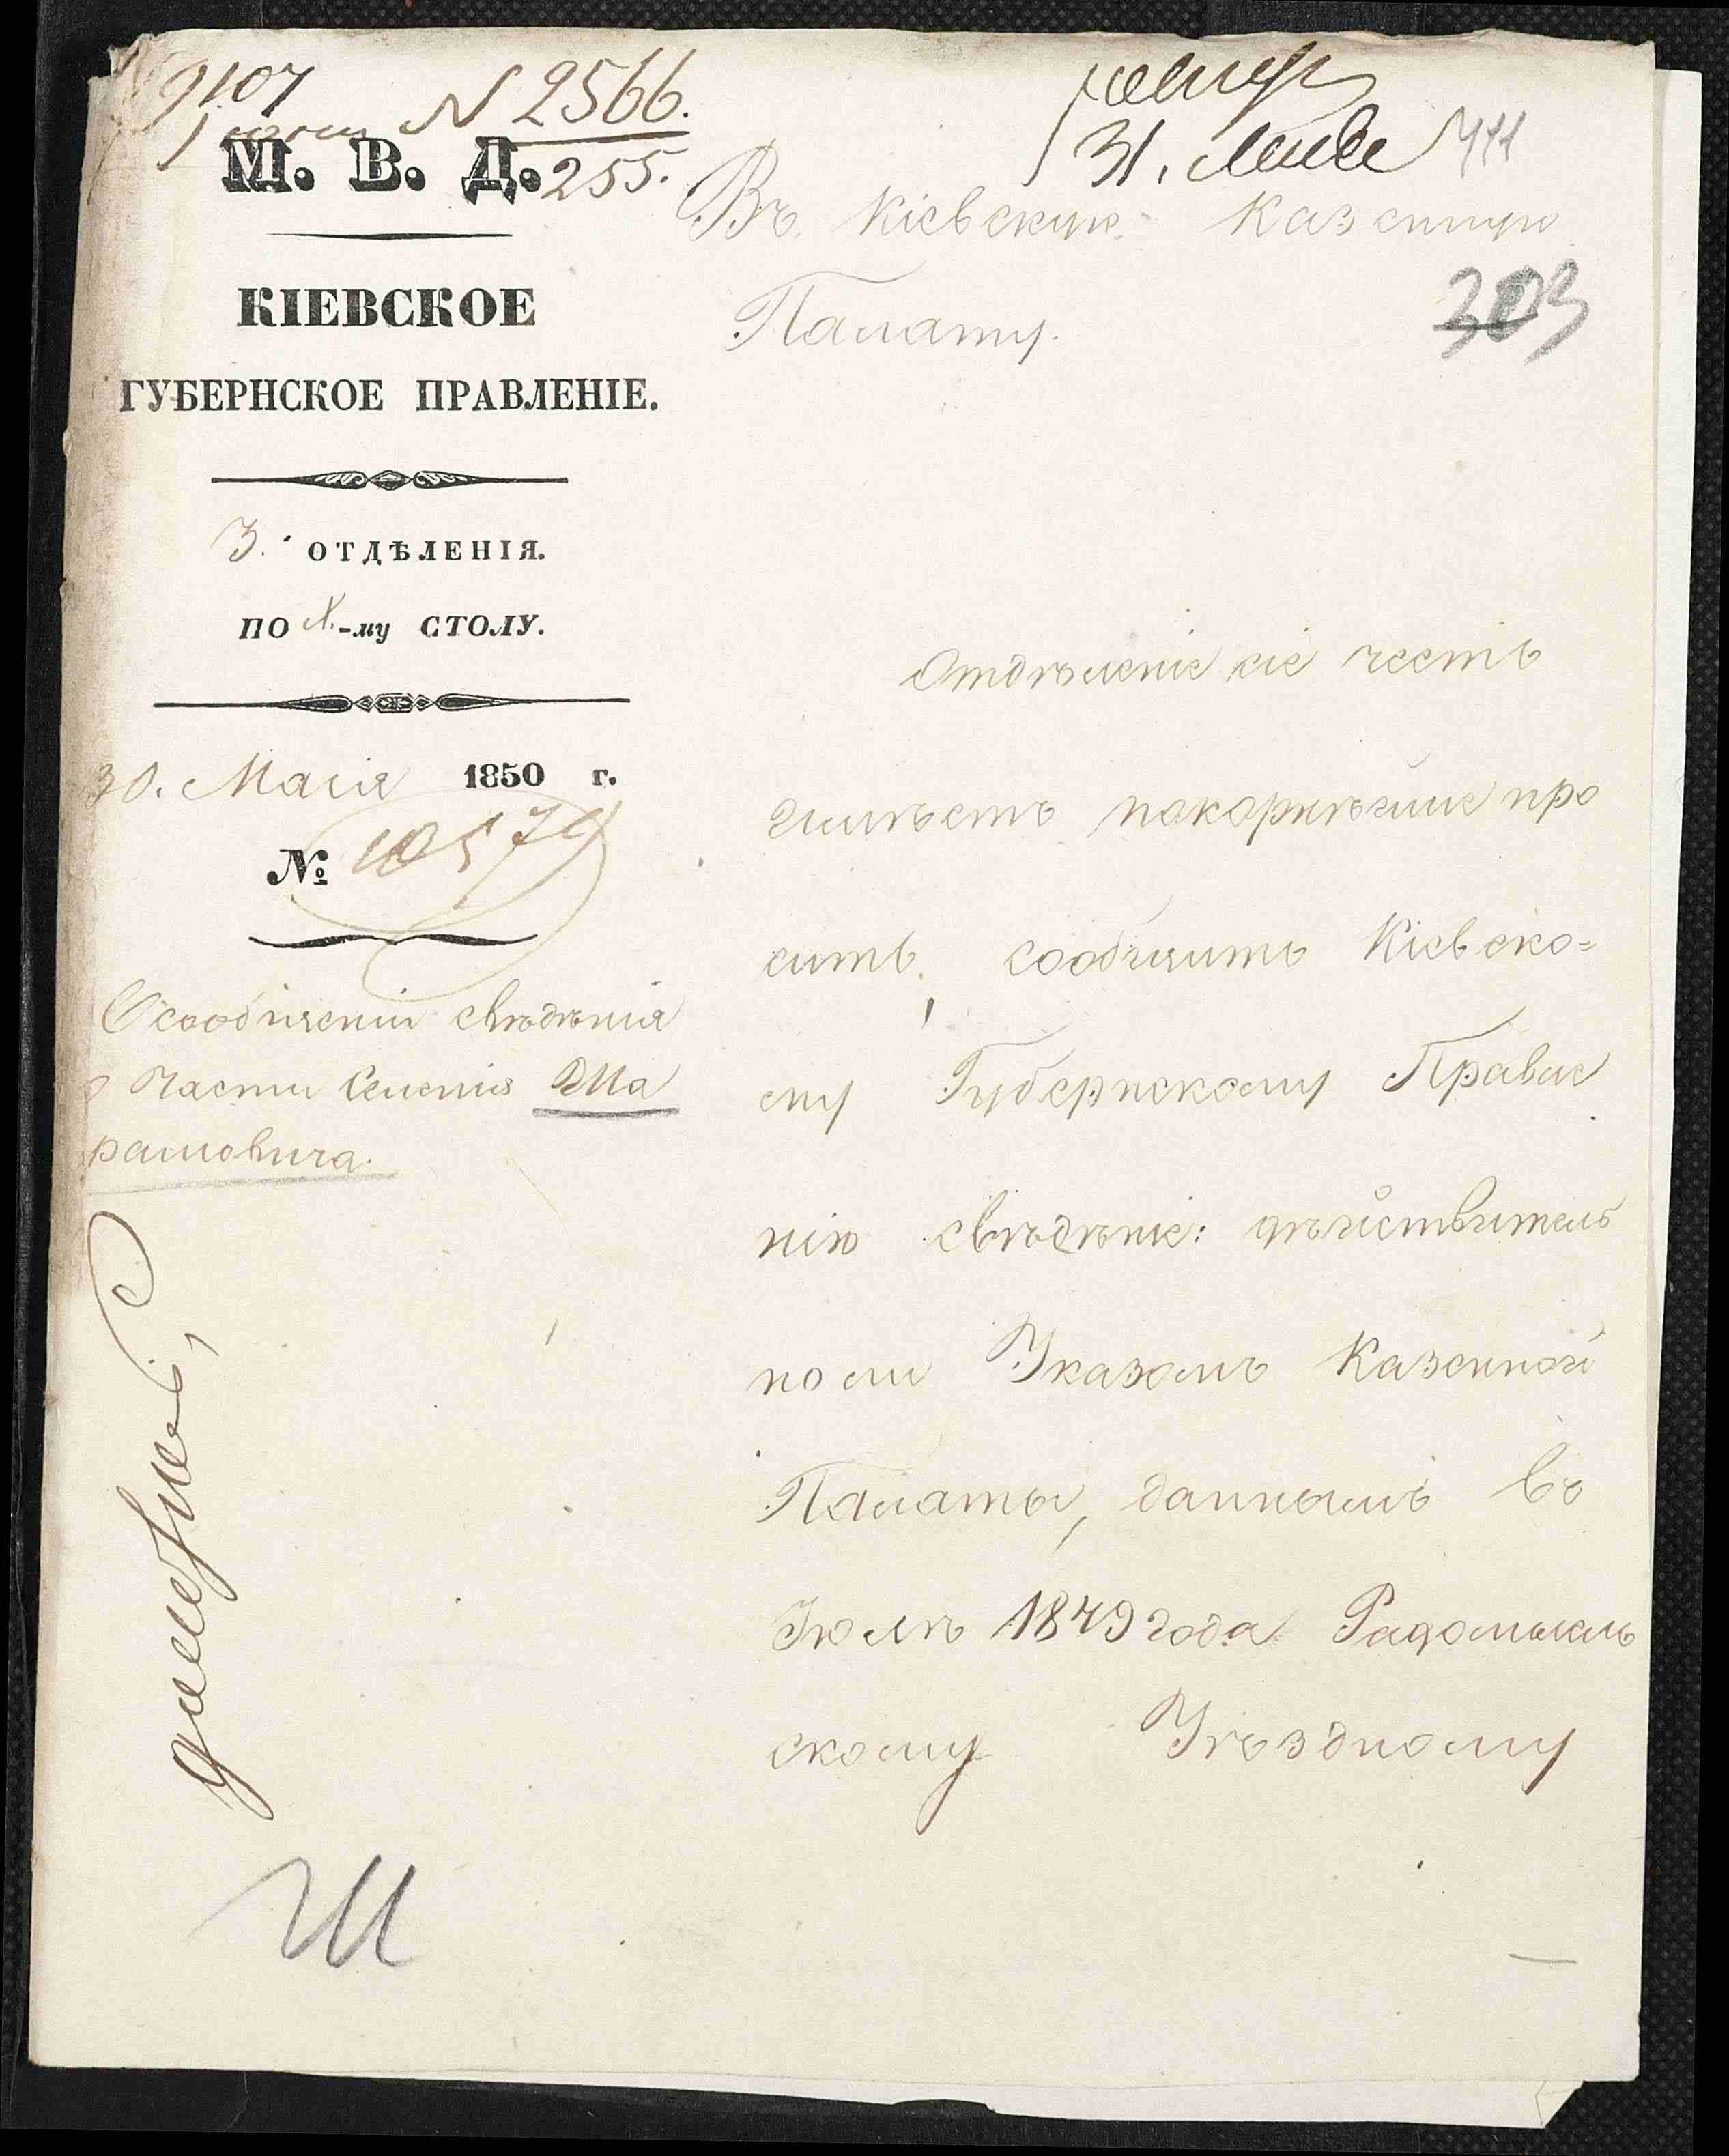 9107
N 2566.
255.
31. Мая
М. В. Д.
КІЕВСКОЕ
ГУБЕРНСКОЕ ПРАВЛЕНІЕ.
3. ОТДѢЛЕНІЯ.
ПО -му СТОЛУ.
30. Маія 1850 г.
№ 10579
О сообщеніи свѣдѣнія
о части селенія Ша
рамовича.
Въ Кіевскую Казенную
Палату.
303
Отдѣленіе сіе честь
имѣетъ покорнѣйше про
сить, сообщить Кіевско=
му Губернскому Правле
нію свѣдѣніе: дѣйствитель
но ли Указомъ Казенной
Палаты, даннымъ въ
Іюлѣ 1849 года Радомысль
скому Уѣздному